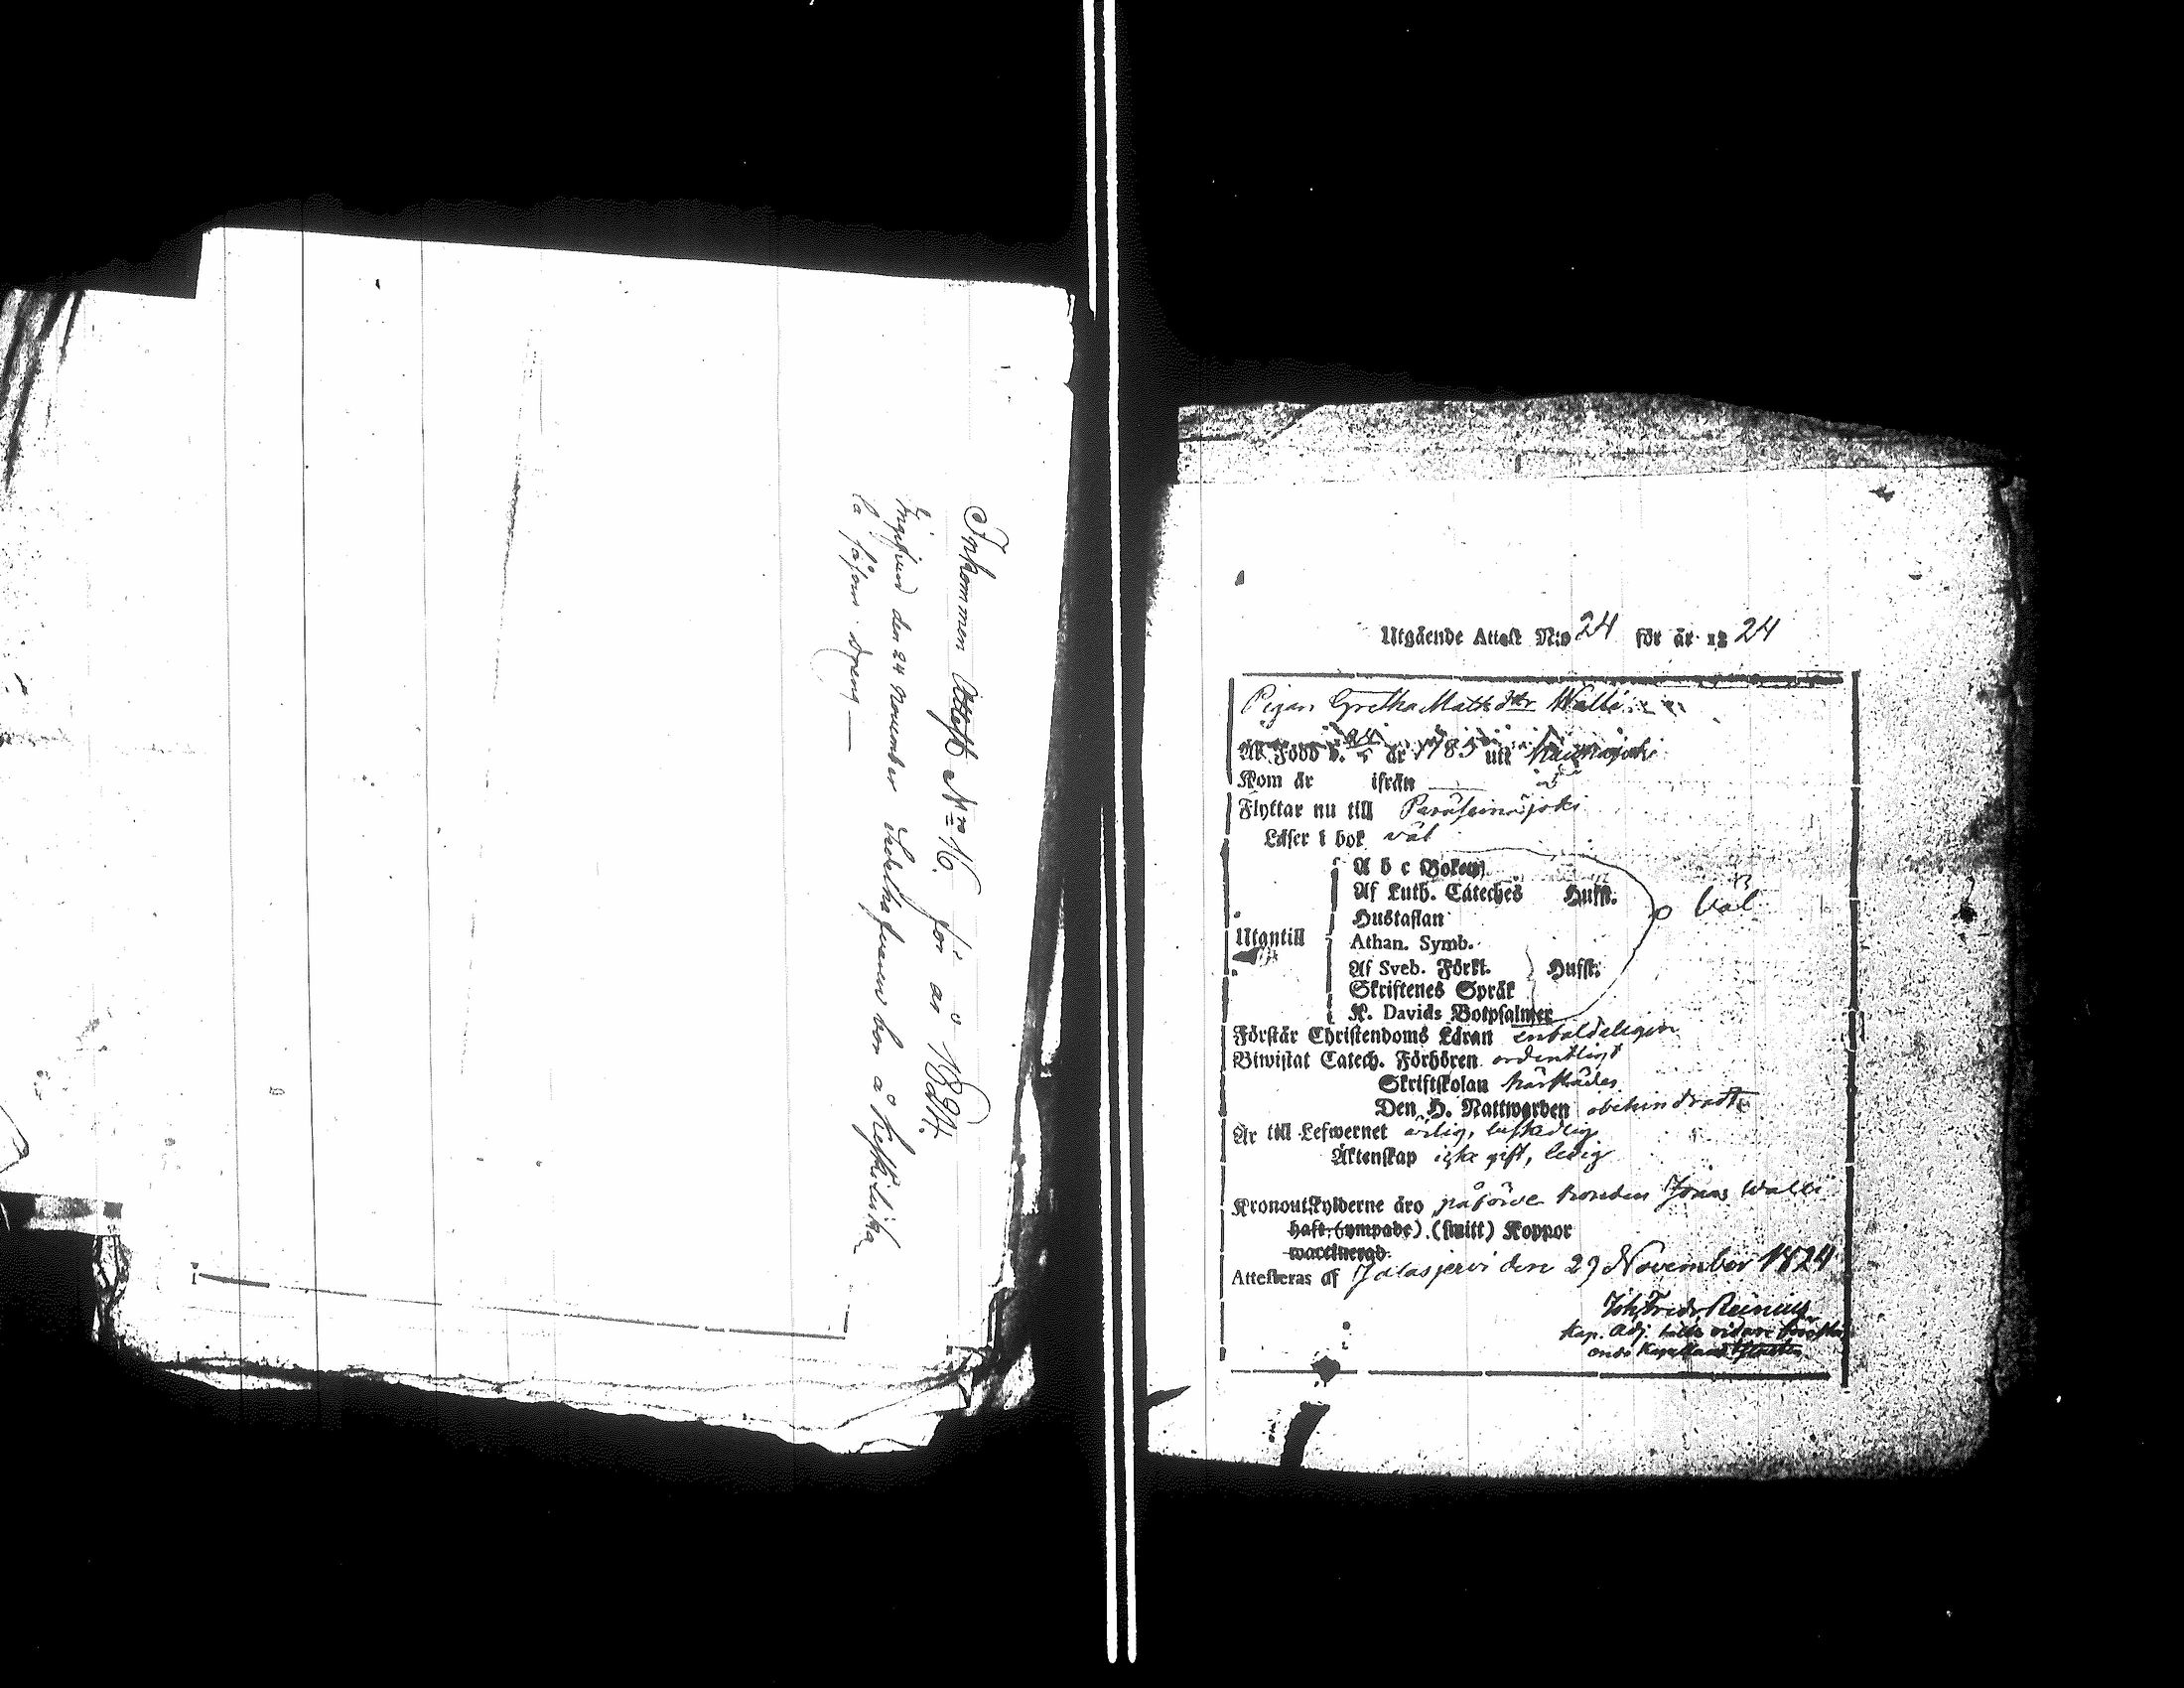 Inkommen Attest N:ro 16 för år 1824.
den 24 November
Utgående Attest N:o 24 för år 1824
Pigan Gretha Matts dtr Walli
Är Född d. år 1785 uti
Kom år ifrån
Flyttar nu till Peräseinäjoki
Läser i bok väl
A b c Boken
Af Luth. Cateches Hufst.
Hustaflan
Utantill
väl
Athan. Symb.
Af Sveb. Förkl. Hufst.
Skriftenes Språk
K. Davids Botpsalmer
Förstår Christendoms Läran enfaldeligen
Biwistat Catech. Förhören ordentligt
Skriftskolan
Den H. Nattwarden obehindradt
Är till Lefwernet ärlig,
Äktenskap icke gift, ledig
Kronoutskylderne äro påförde bonden Jonas Walli
haft (ympade) (smitt) Koppor
waccinerad
Attesteras af Jalasjerwi den 29 November 1824
Joh. Fredr. Reinius
Kap. Adj.